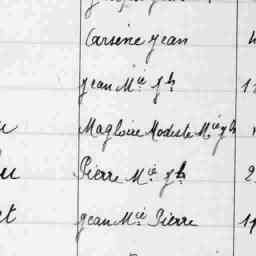 Arsène Jean
Jean Mie Jh
Magloire Modeste Mie Jh
u Pierre Mie Jh 2
et Jean Mie Pierre 19